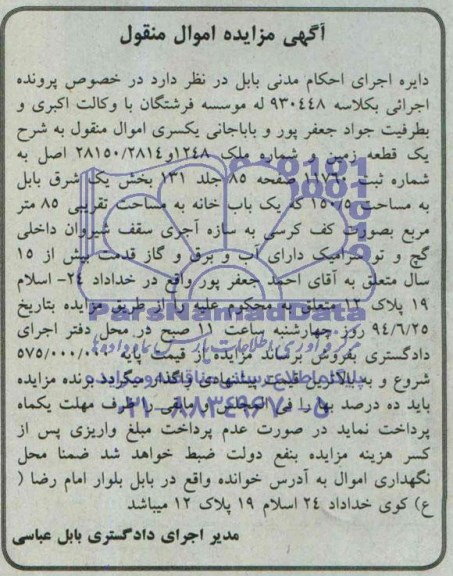 آگهی مزایده اموال منقول
دایره اجرای احکام مدنی بابل در نظر دارد در خصوص پرونده
اجرائی بکلاسه ۹۳۰۴۴۸ له موسسه فرشتگان با وکالت اکبری و
بطرفیت جواد جعفر پور و باباجانی یکسری اموال منقول به شرح
یک قطعه زمین و شماره ملک ۱۲۴۸و۲۸۱۵۰/۲۸۱۴ اصل به
شماره ثبت صفحه ۸۵ جلد ۱۳۱ بخش یک شرق بابل
به مساحت ۱۵۰/۵ که یک باب خانه به مساحت تقریبی ۸۵ متر
مربع بصورت کف کرسی به سازه آجری سقف شیروان داخلی
گچ و تو سرامیک دارای آب و برق و گاز قدمت بیش از ۱۵
سال متعلق به آقای احمد جعفر پور واقع در خداداد ۲۴- اسلام
۱۹ پلاک ۱۲ متعلق به محکوم علیه را از طریق مزایده بتاریخ
۹۴/۶/۲۵ روز چهارشنبه ساعت ۱۱ صبح در محل دفتر اجرای
دادگستری بفروش برساند مزایده از قیمت پایه ۵۷۵/۰۰۰/۰۰۰
شروع و به بالاترین قیمت پیشنهادی واگذار میگردد برنده مزایده
باید ده درصد بها را فی المجلس و مابقی را ظرف مهلت یکماه
پرداخت نماید در صورت عدم پرداخت مبلغ واریزی پس از
کسر هزینه مزایده بنفع دولت ضبط خواهد شد ضمنا محل
نگهداری اموال به آدرس خوانده واقع در بابل بلوار امام رضا (
ع) کوی خداداد ۲۴ اسلام ۱۹ پلاک ۱۲ میباشد
مدیر اجرای دادگستری بابل عباسی
ParsNamadData